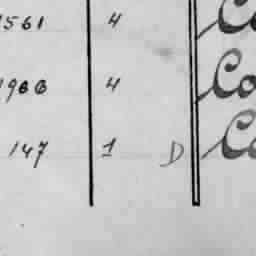 1561 4 Co
1966 4 Co
147 1 D Co